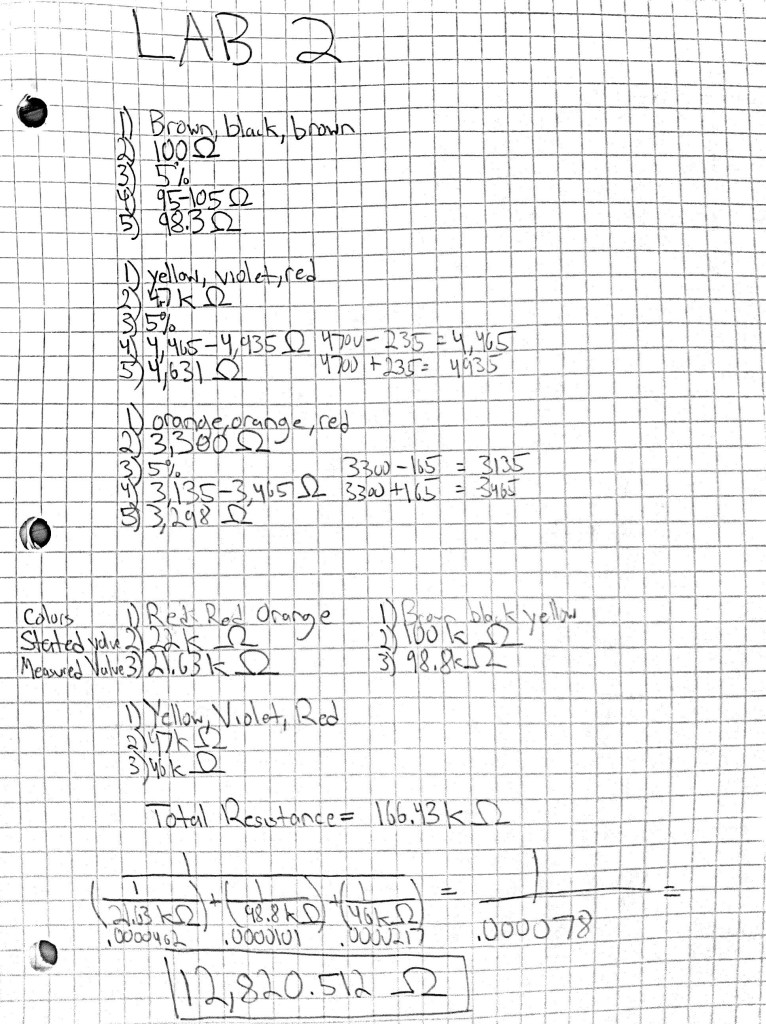 LAB 2
1) Brown, black, brown
2) 100 Ω
3) 5%
4) 95-105 Ω
5) 98.3 Ω
1) yellow, violet, red
2) 4.7 k Ω
3) 5%
4) 4,465-4,935 Ω 4700 - 235 = 4,465
5) 4,631 Ω 4700 + 235 = 4935
1) orange, orange, red
2) 3,300 Ω
3) 5% 3300 - 165 = 3135
4) 3,135-3,465 Ω 3300 + 165 = 3465
5) 3,298 Ω
Colors 1) Red Red Orange 1) Brown black yellow
Stated value 2) 22 k Ω 2) 100 k Ω
Measured Value 3) 21.63 k Ω 3) 98.8k Ω
1) Yellow, Violet, Red
2) 47k Ω
3) 46k Ω
Total Resistance = 166.43 k Ω
1 1
(1/21.63 kΩ) + (1/98.8 kΩ) + (1/46 kΩ) = .000078 =
.0000462 .0000101 .0000217
12,820.512 Ω